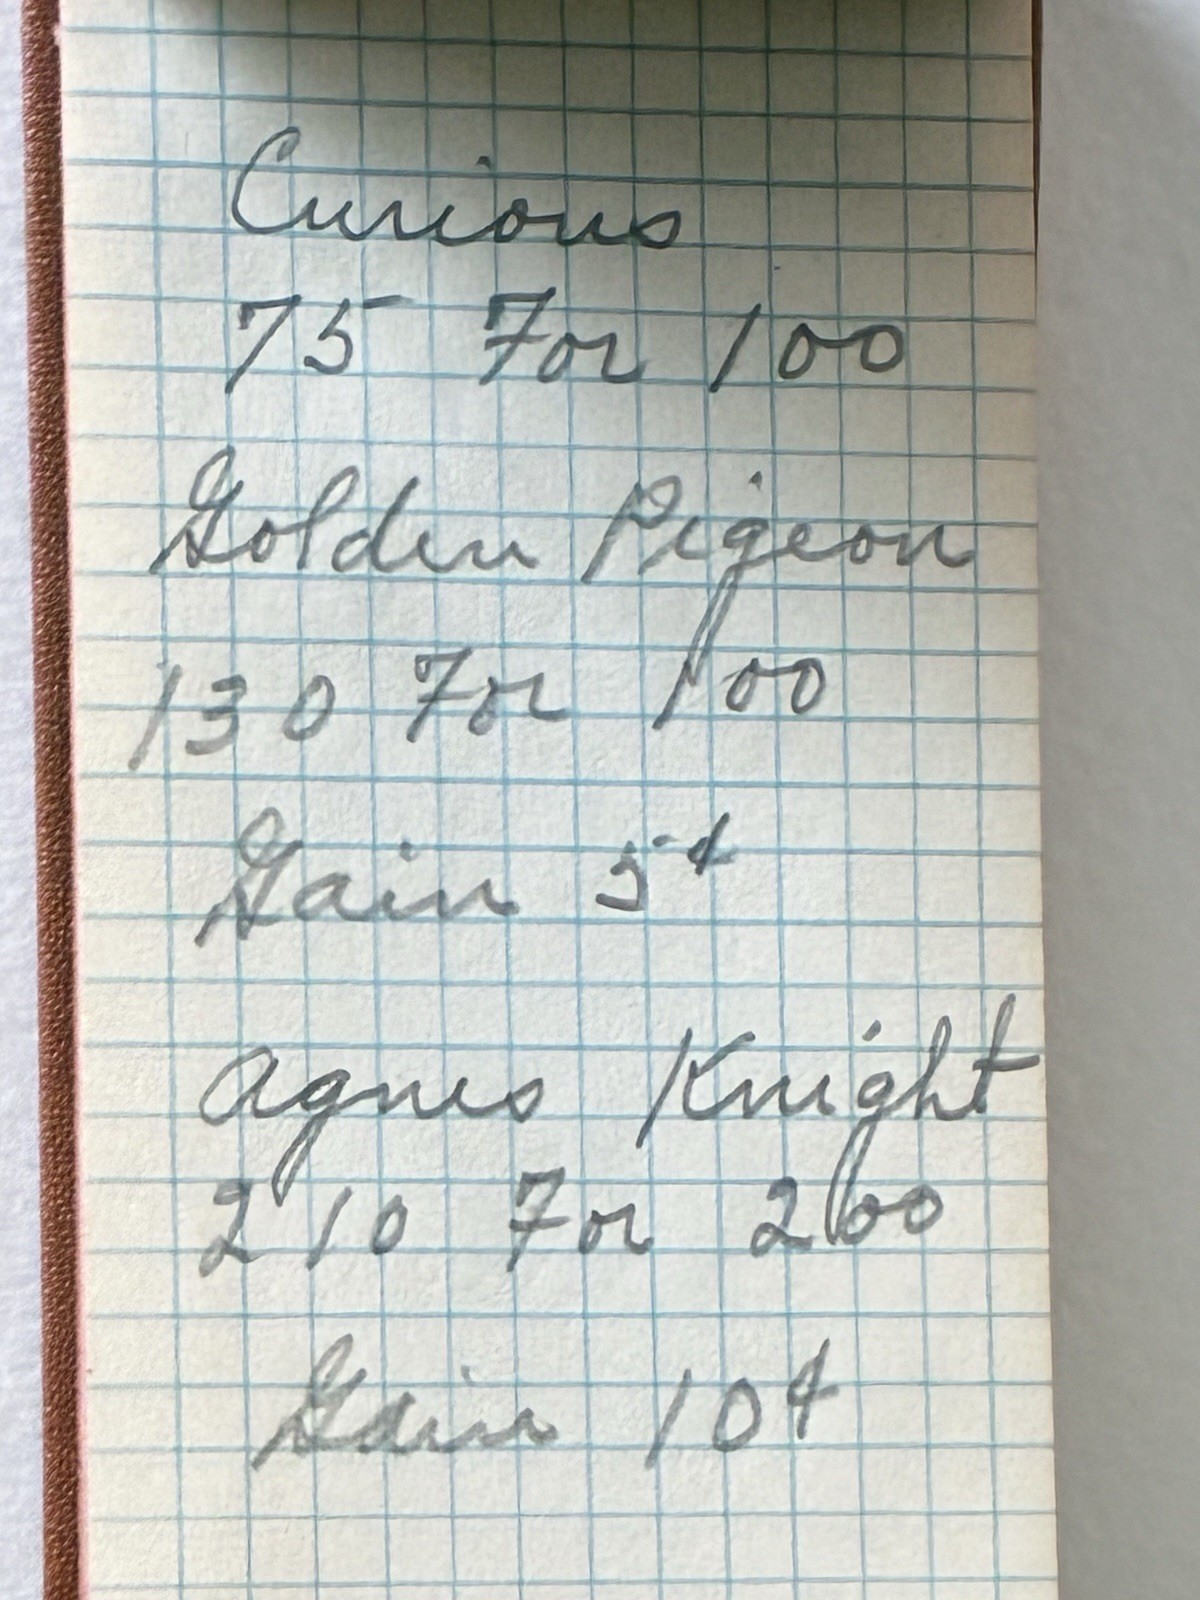 Curious
75 For 100
Golden Pigeon
130 For 100
Gain 5¢
Agnes Knight
210 For 200
Gain 10¢